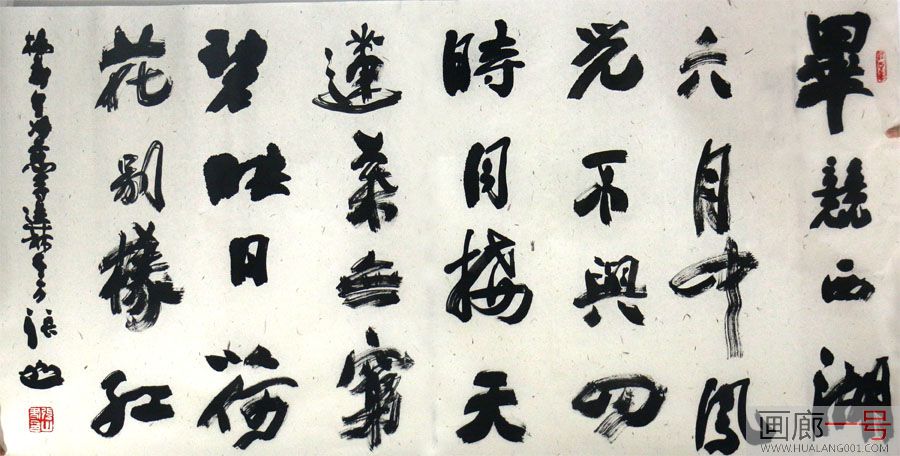 畢競西湖
六月中風
光不與四
時同接天
蓮葉無窮
碧映日荷
花別樣紅
楊萬里淨慈寺送林子方 張山
画廊一号
WWW.HUALANG001.COM